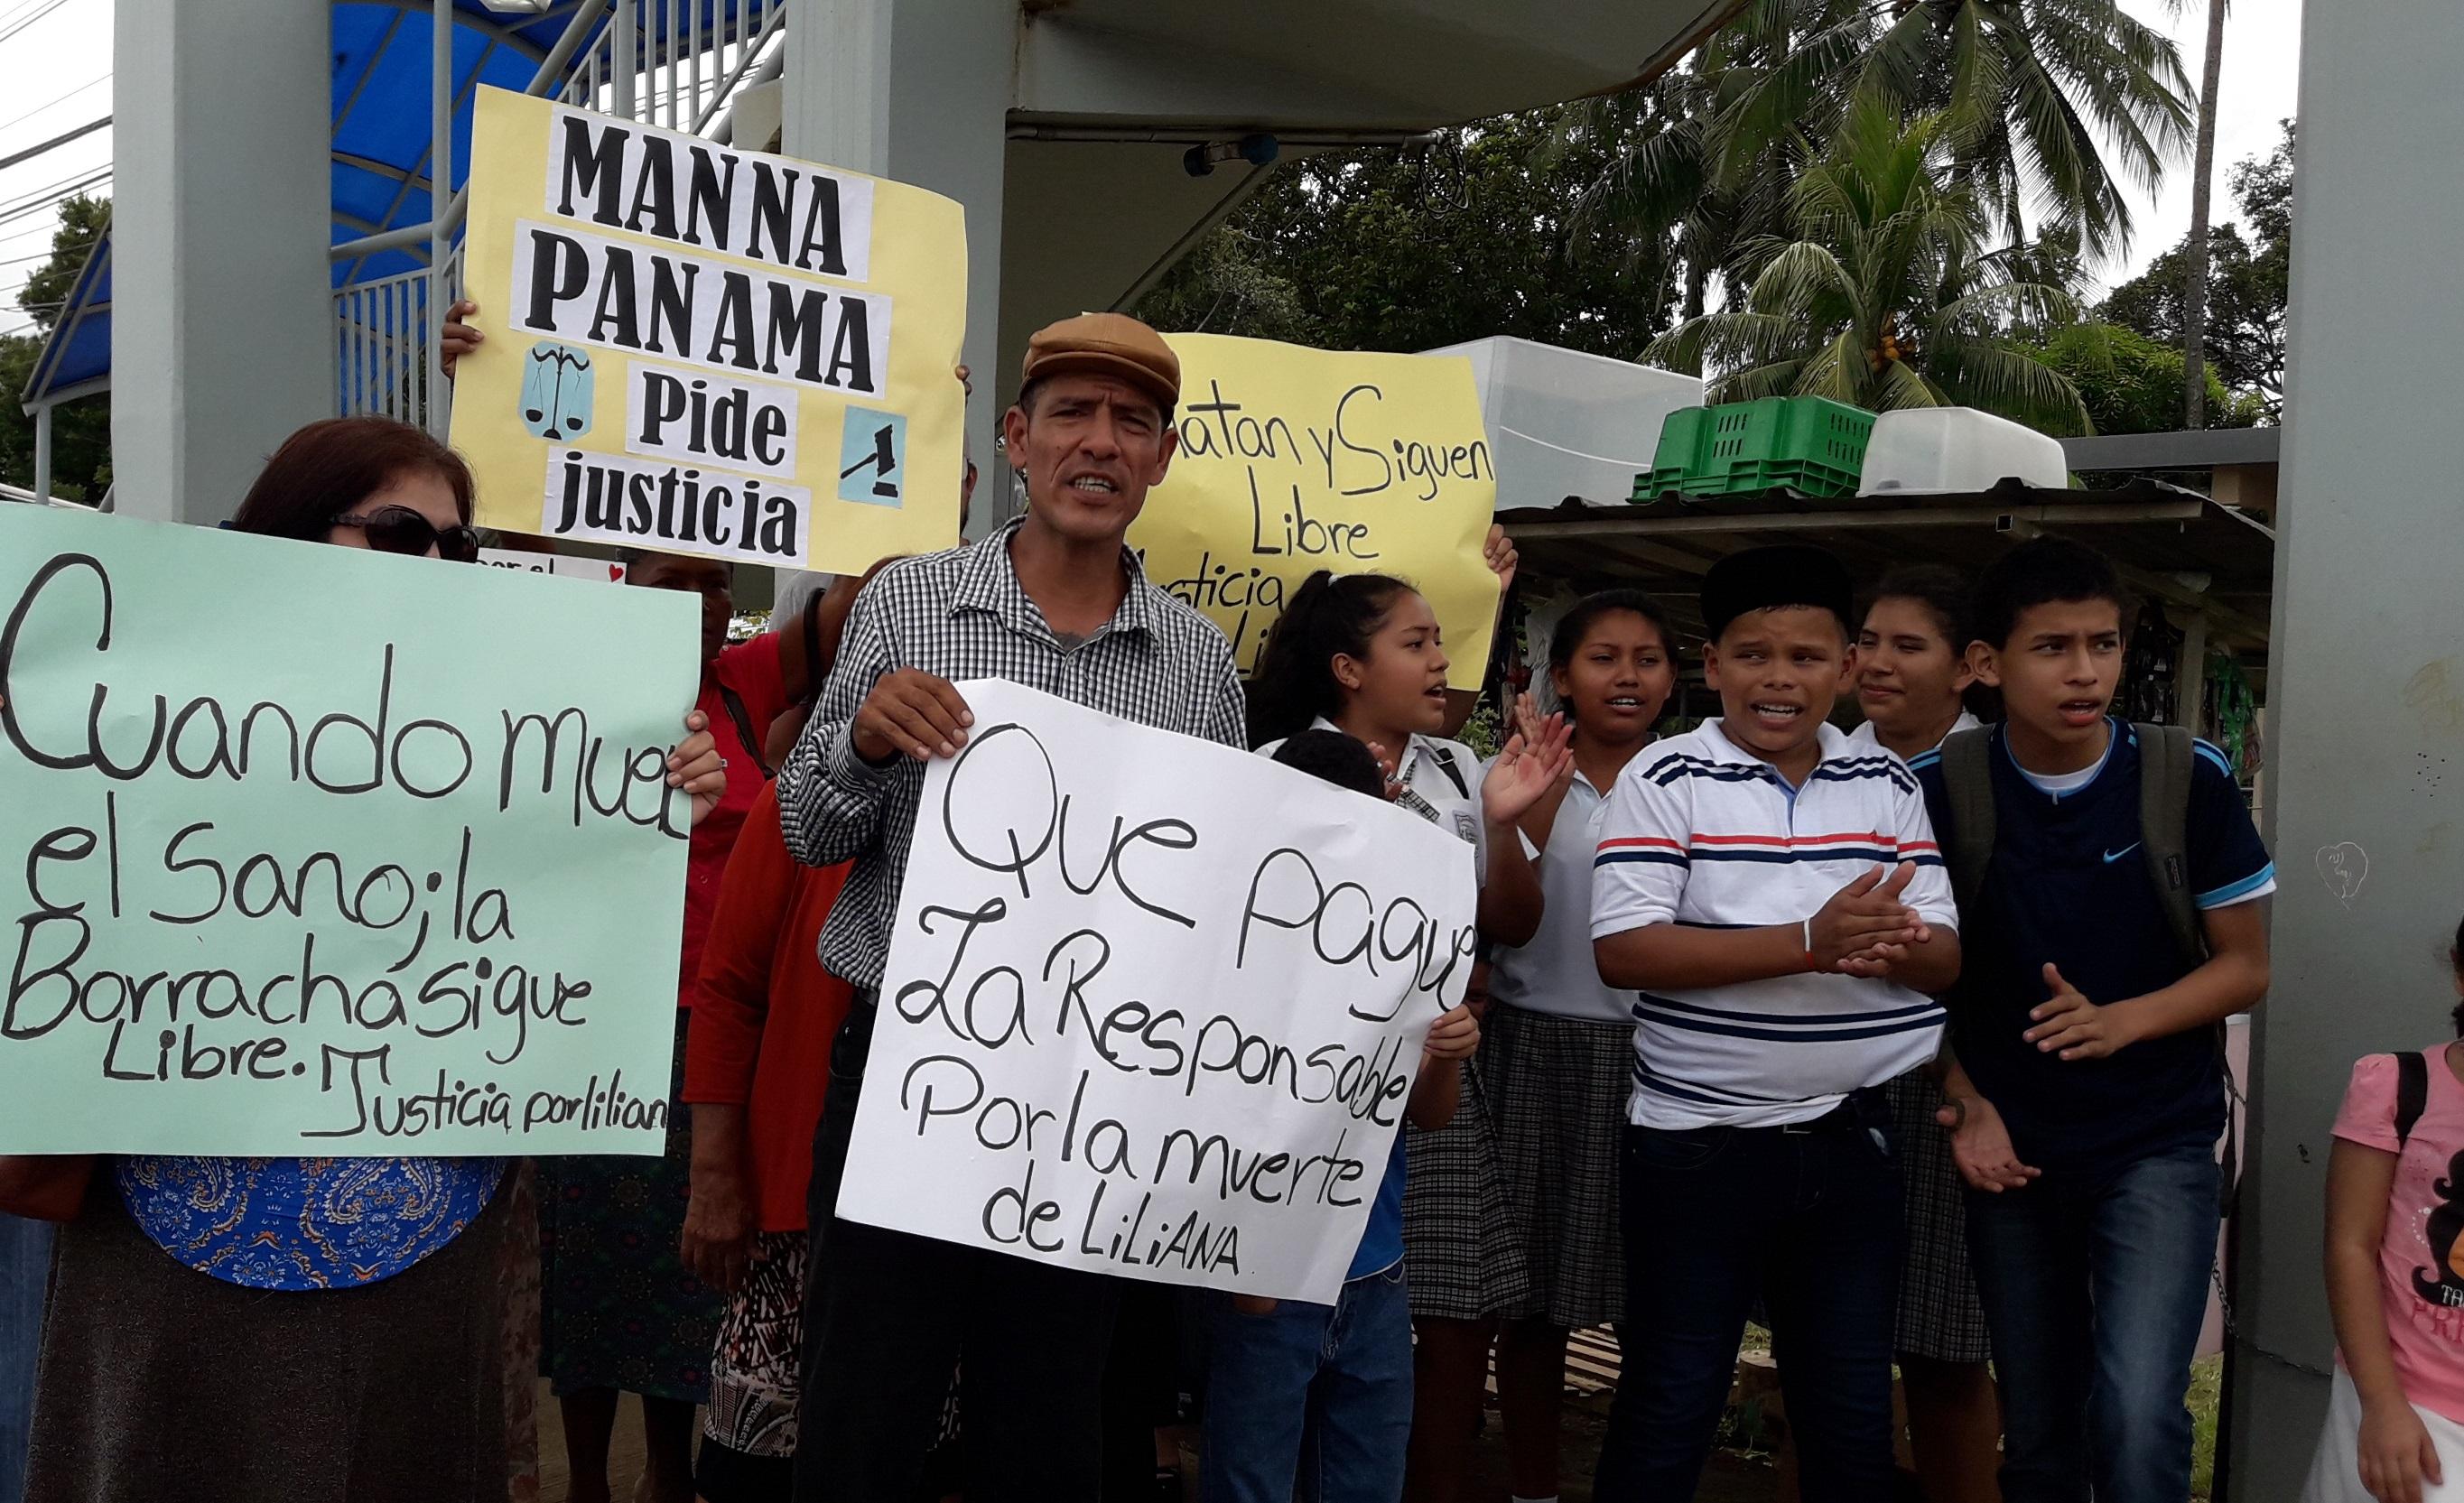 MANNA
PANAMA
Pide
justicia
y Siguen
Libre
Cuando muer
el Sano; la
Borracha sigue
Libre.
Justicia por lilian
Que pague
La Responsable
Por la muerte
de LiLiANA
por el